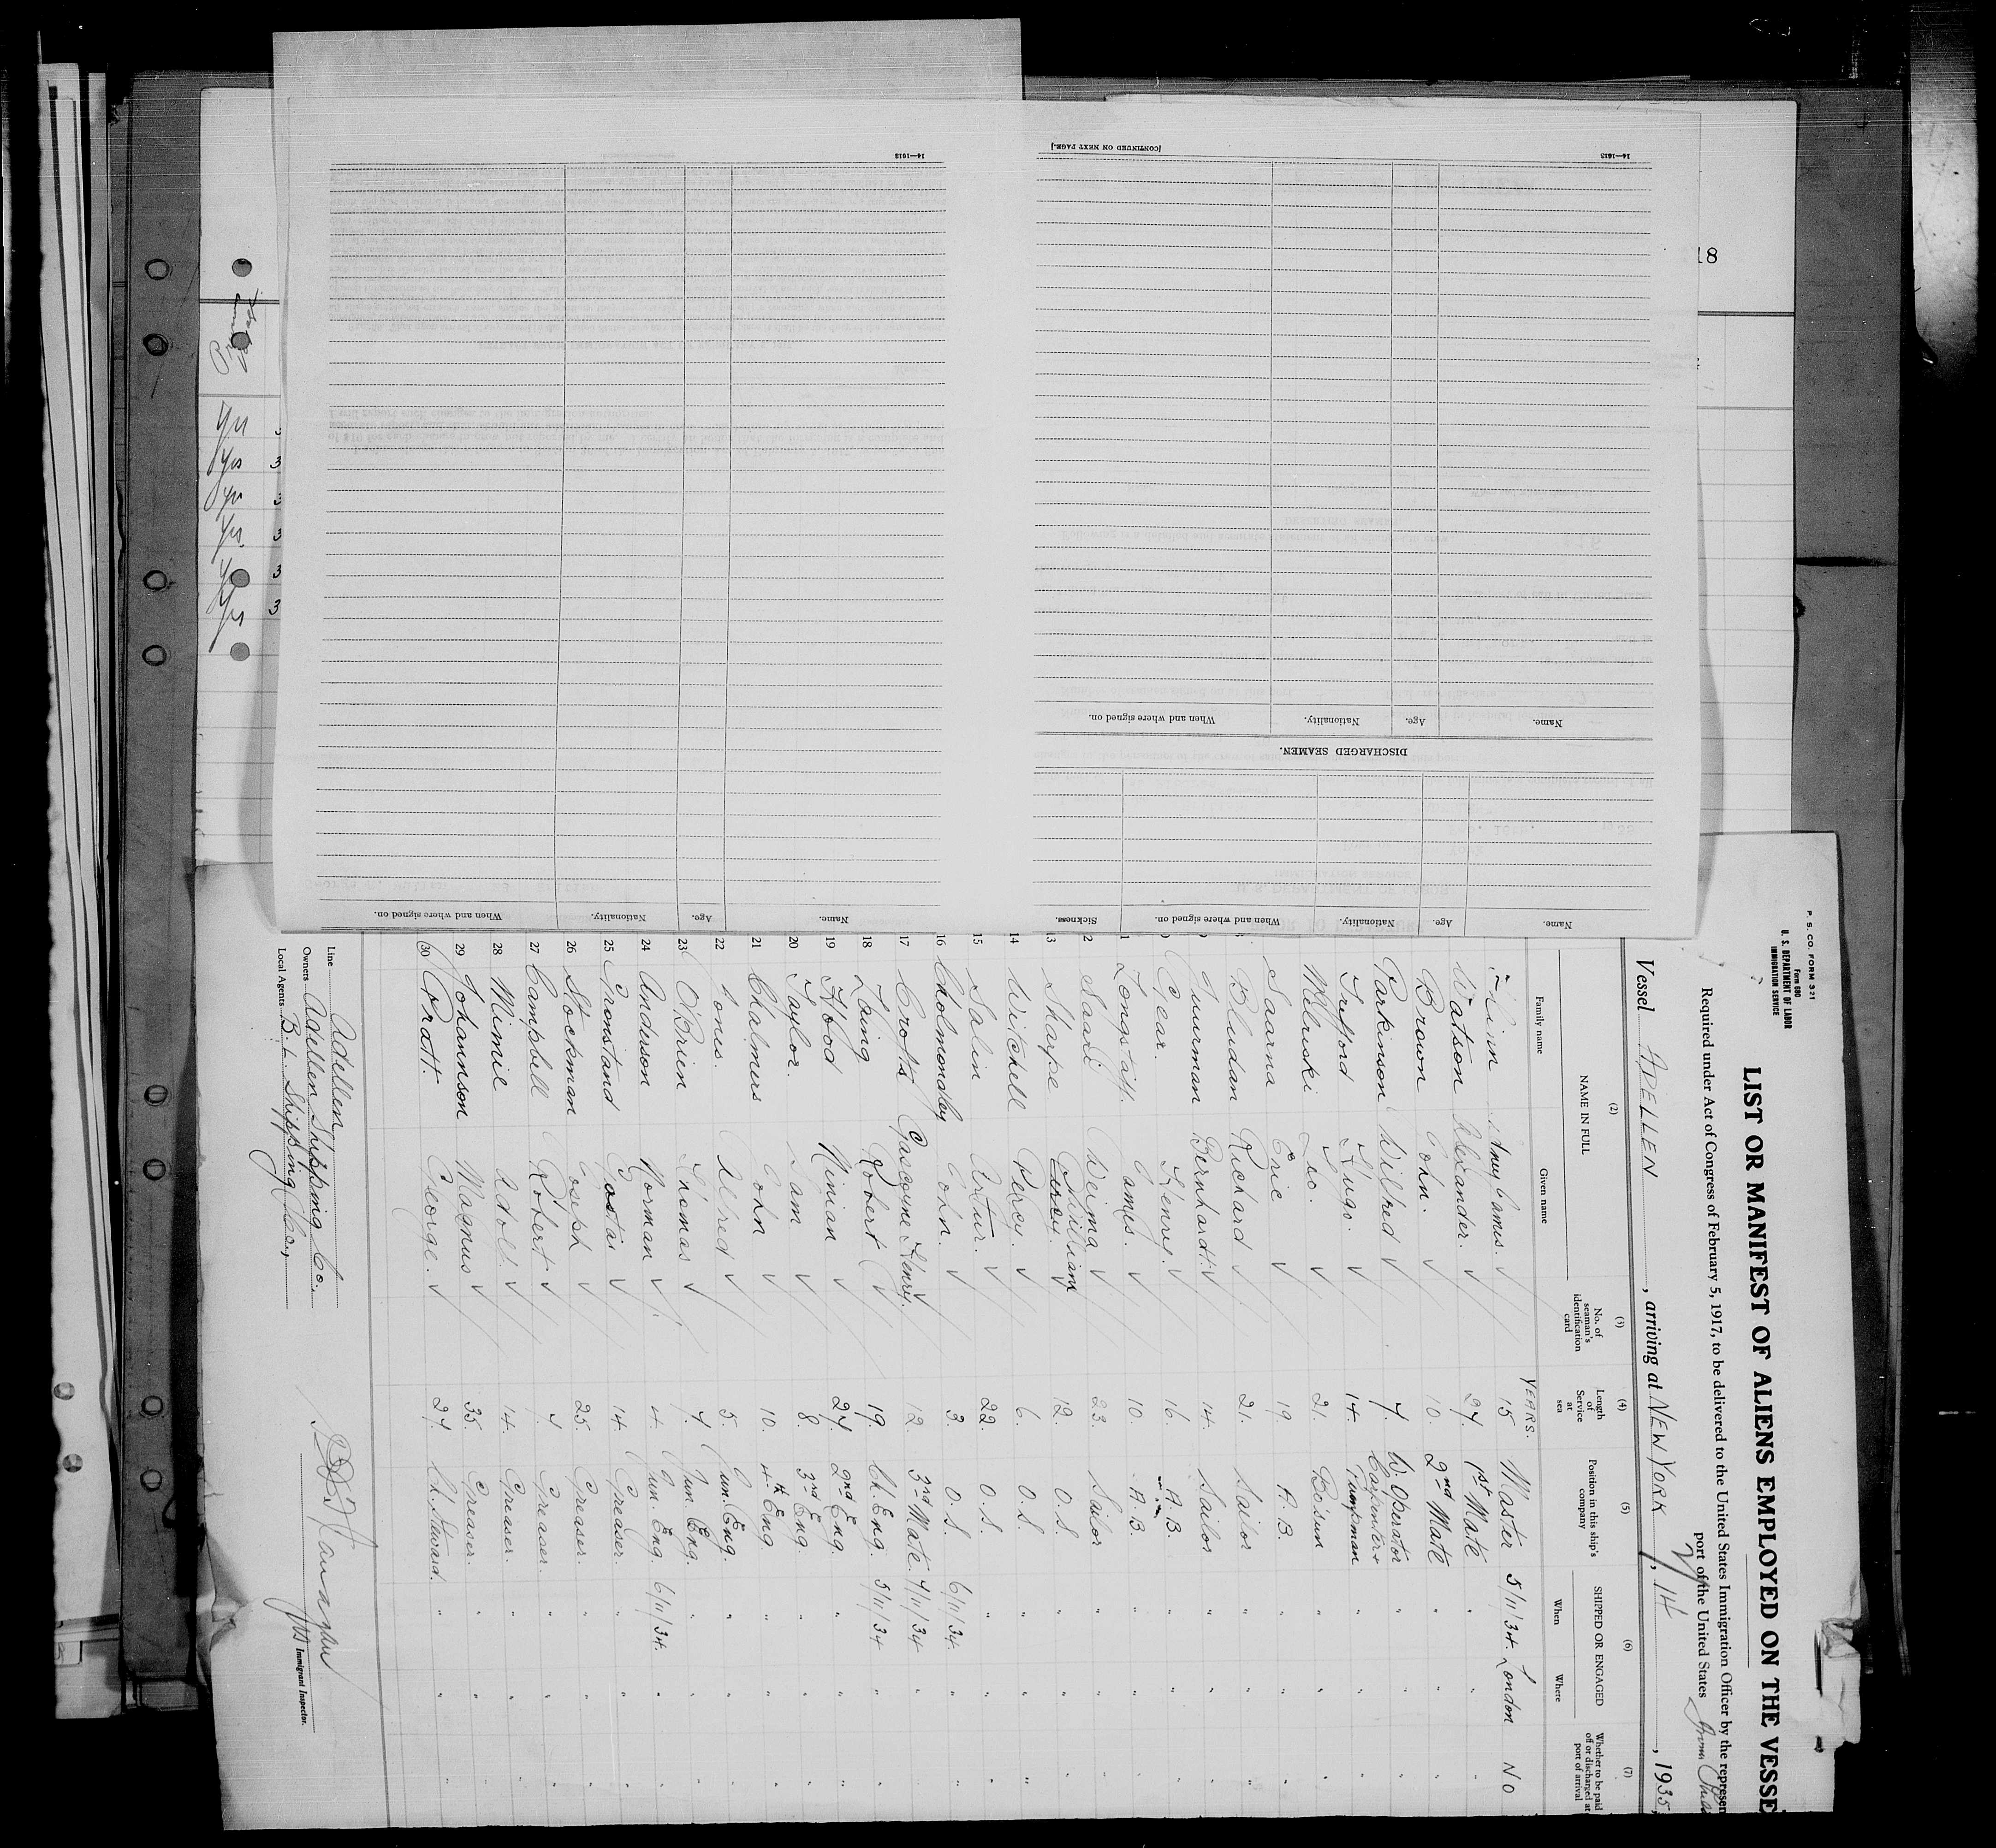 P. S. CO. FORM 321
Form 680
U. S. DEPARTMENT OF LABOR
IMMIGRATION SERVICE
LIST OR MANIFEST OF ALIENS EMPLOYED ON THE VESSE
Required under Act of Congress of February 5, 1917, to be delivered to the United States Immigration Officer by the represen
port of the United States
Vessel ADELLEN , arriving at NEW YORK , 1935,
(2) (3) (4) (5) (6) (7)
NAME IN FULL
Family name Given name
No. of seaman's identification card
Length of Service at sea
Position in this ship's company
SHIPPED OR ENGAGED
When Where
Whether to be paid off or discharged at port of arrival
YEARS.
James. 15 Master 5/11/34. London NO
Watson Alexander. 27. 1st Mate " " "
Brown John. 10. 2nd Mate " " "
Parkinson Wilfred 7. W. Operator " " "
Trifford Hugo. 14. Carpenter + Pumpman " " "
Leo. 21. Bo'sun " " "
Saarna Eric 19 A. B. " " "
Bludan Richard 21. Sailor " " "
Tuurman Bernhardt. 14. Sailor " " "
Gear. Henry. 16. A. B. " " "
Longstaff. James. 10. A. B. " " "
Saard Weima 23. Sailor " " "
13 Sharpe William 12. O. S. " " "
14 Witchell Percy. 6. O. S. " " "
15 Salin Artur. 22. O. S. " " "
16 Cholmondley John. 3. O. S. 6/11/34. " "
17 Crofts Gascoyne Henry. 12. 3rd Mate. 7/11/34 " "
18 Laing Robert 19. Ch. Eng. 5/11/34 " "
19 Hood Ninian 27. 2nd Eng. " " "
20 Taylor. Sam 8. 3rd Eng. " " "
21 Chalmers John 10. 4th Eng. " " "
22 Jones. Alfred 5. Jun. Eng. " " "
23 O'Brien Thomas 7. Jun. Eng. " " "
24 Anderson Norman 4. Jun. Eng. 6/11/34. " "
25 Gronstand Gostas 14. Greaser. " " "
26 Stockman Joseph 25. Greaser. " " "
27 Campbell Robert 7. Greaser. " " "
28 Mimie Adolf. 14. Greaser. " " "
29 Johanson Magnus 35. Greaser. " " "
30 Pratt. George. 27. Ch. Steward. " " "
Line Adellen
Owners Adellen Shipping Co.
Local Agents B. L. Shipping
Immigrant Inspector.
Name. Age. Nationality. When and where signed on. Sickness.
DISCHARGED SEAMEN.
Name. Age. Nationality. When and where signed on.
14—1618
[CONTINUED ON NEXT PAGE.]
Name. Age. Nationality. When and where signed on.
14—1618
18
Yes 3
Yes 3
Yes 3
Yes 3
Yes 3
Yes 3